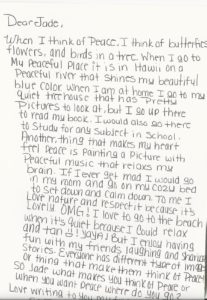 Dear Jade,
When I think of Peace, I think of butterflies
flowers, and birds in a tree. When I go to
My Peaceful Place it is in Hawii on a
Peaceful river that Shines my beautiful
blue color when I am at home I go to my
quiet treehouse that has Pretty
Pictures to look at, but I go up there
to read my book. I would also go there
to Study for any Subject in School.
Another thing that makes my heart
feel Peace is Painting a Picture with
Peaceful music that relaxes my
brain. If I ever get mad I would go
in my mom and go on my cozy bed
to set down and calm down. To me I
Love nature and respect it because it's
Lovely OMG! I love to go to the beach
when it's quiet because I could relax
and tan (yay!) But I enjoy having
fun with my friends, laughing and sharing
Stories. Everyone has different types of
Or thing that make them think of Peace
So Jade what makes you think of Peace or
when you want Peace where do you go?
Love writing to you